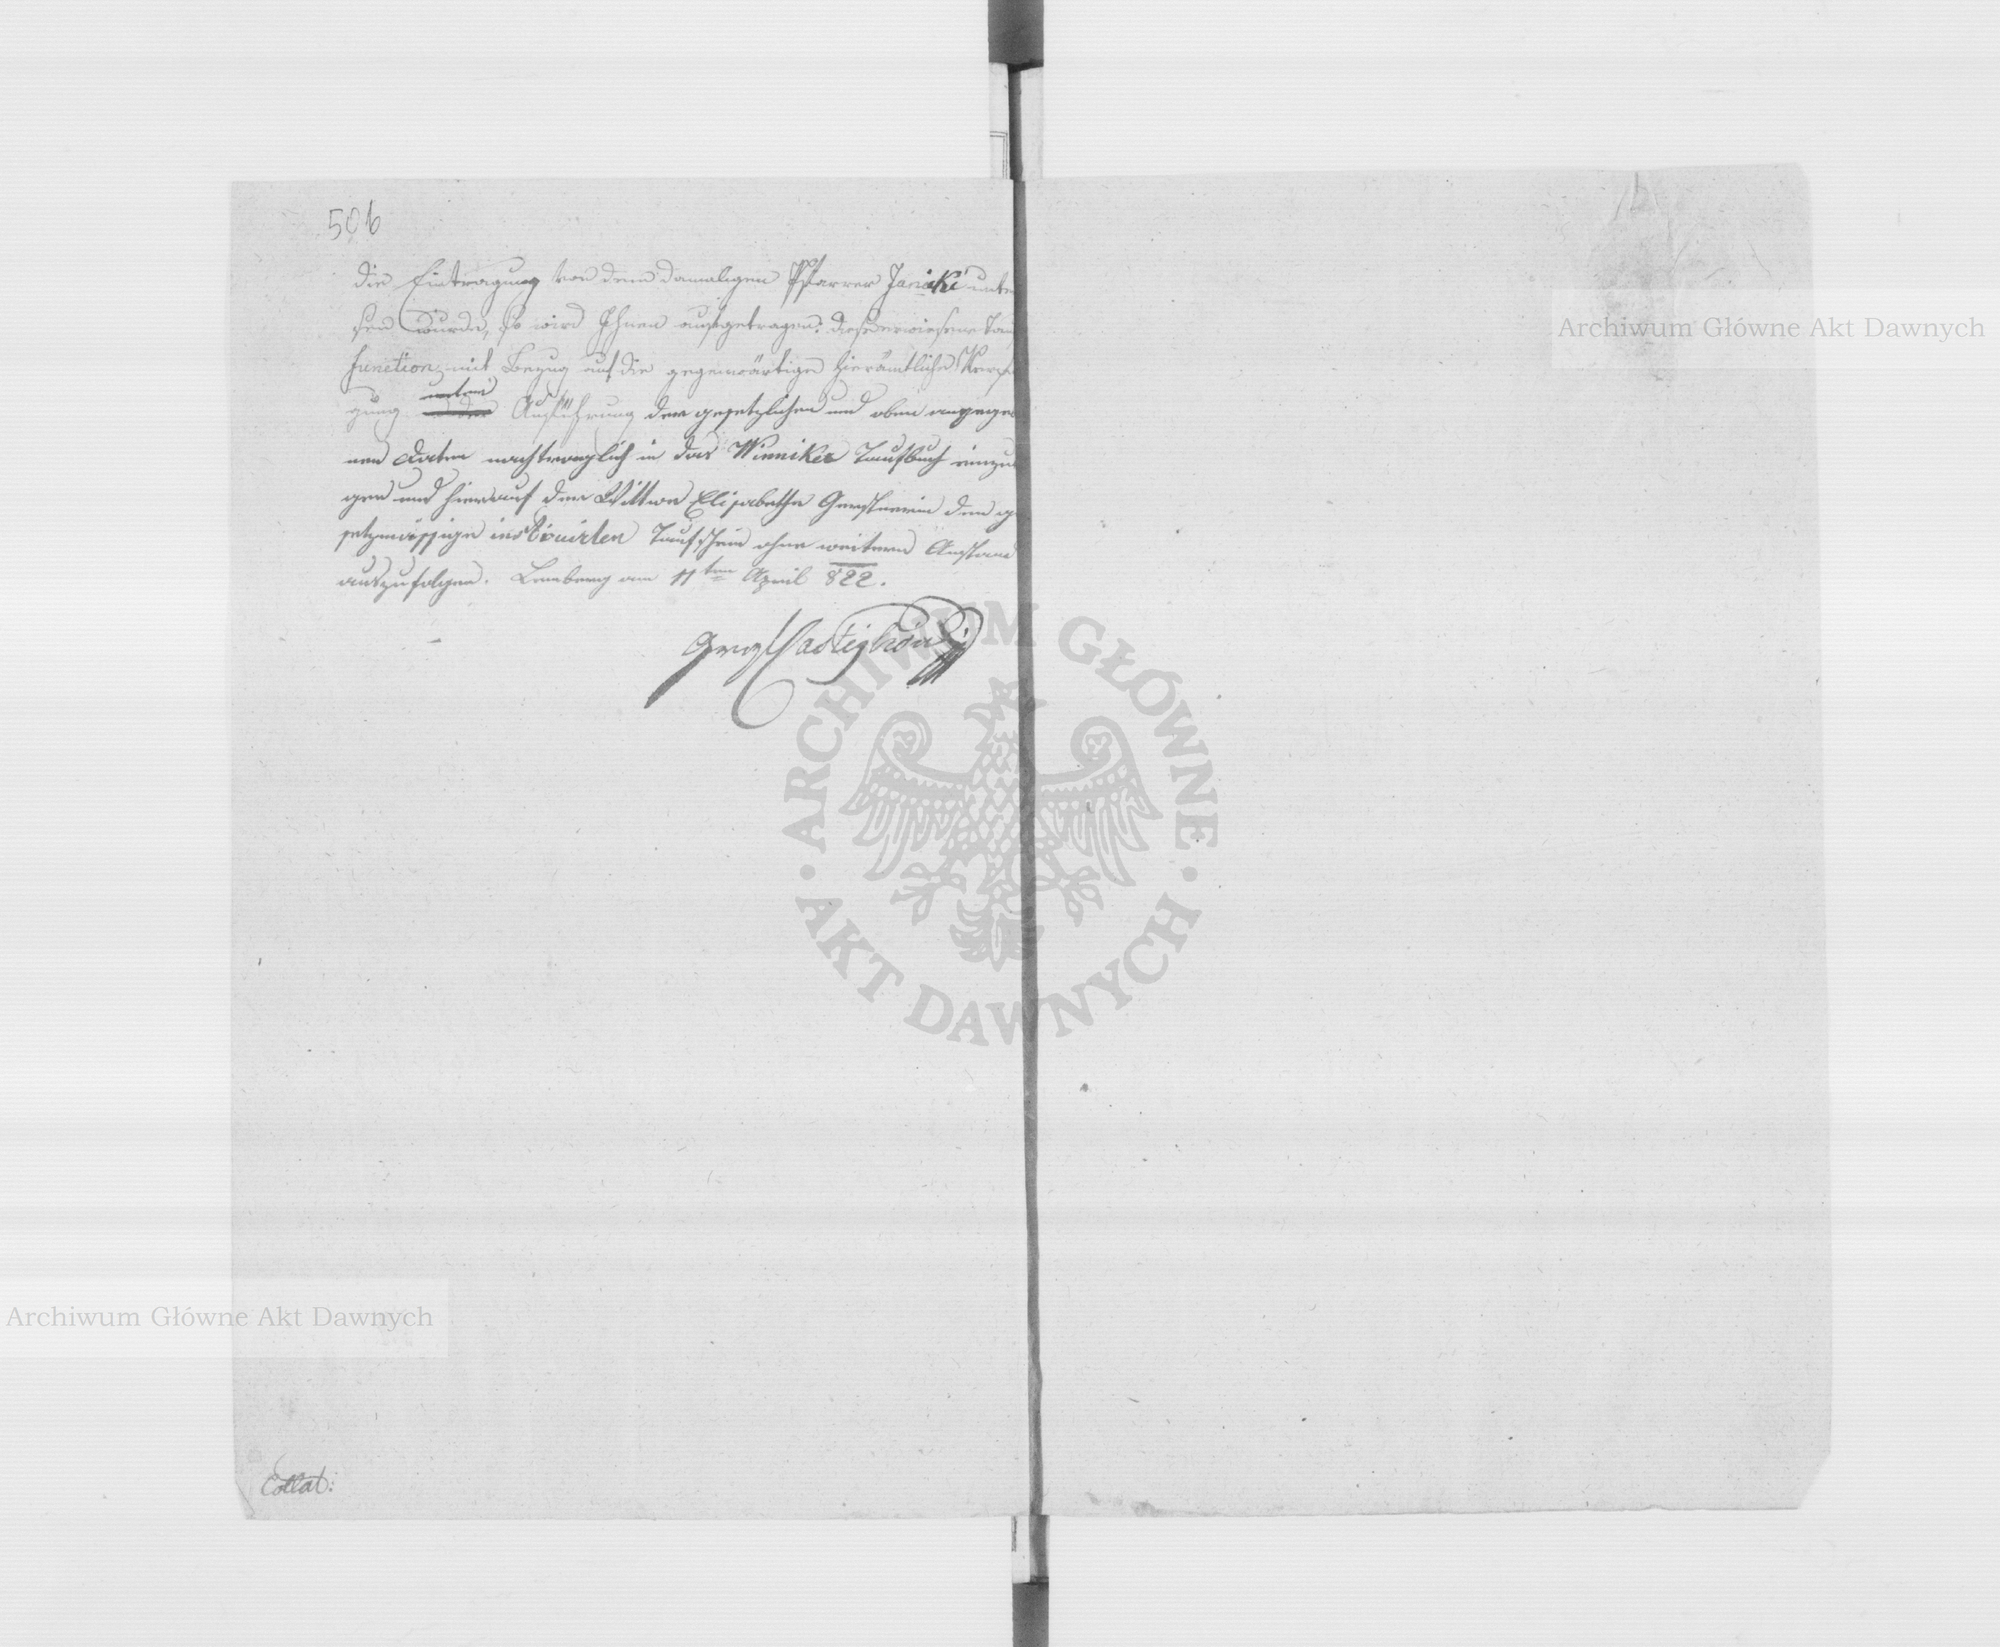 506
die Eintragung von dem damaligen Pfarrer Janicki unter
sen wurde, so wird Ihnen aufgetragen: diese erwiesene Tau
function mit Bezug auf die gegenwärtige hierämtliche
gung unter Anführung der gesetzlichen und oben angege
nen Daten nachtraeglich in das Winniker Taufbuch einzu
gen und hierauf der Wittwe Elisabetha Gerstnerin den g
setzmässige instruirten Taufschein ohne weitern Anstand
auszufolgen. Lemberg am 11ten April 822.
Graf Castiglioni
Collat:
Archiwum Główne Akt Dawnych
Archiwum Główne Akt Dawnych
ARCHIWUM GŁÓWNE · AKT DAWNYCH ·